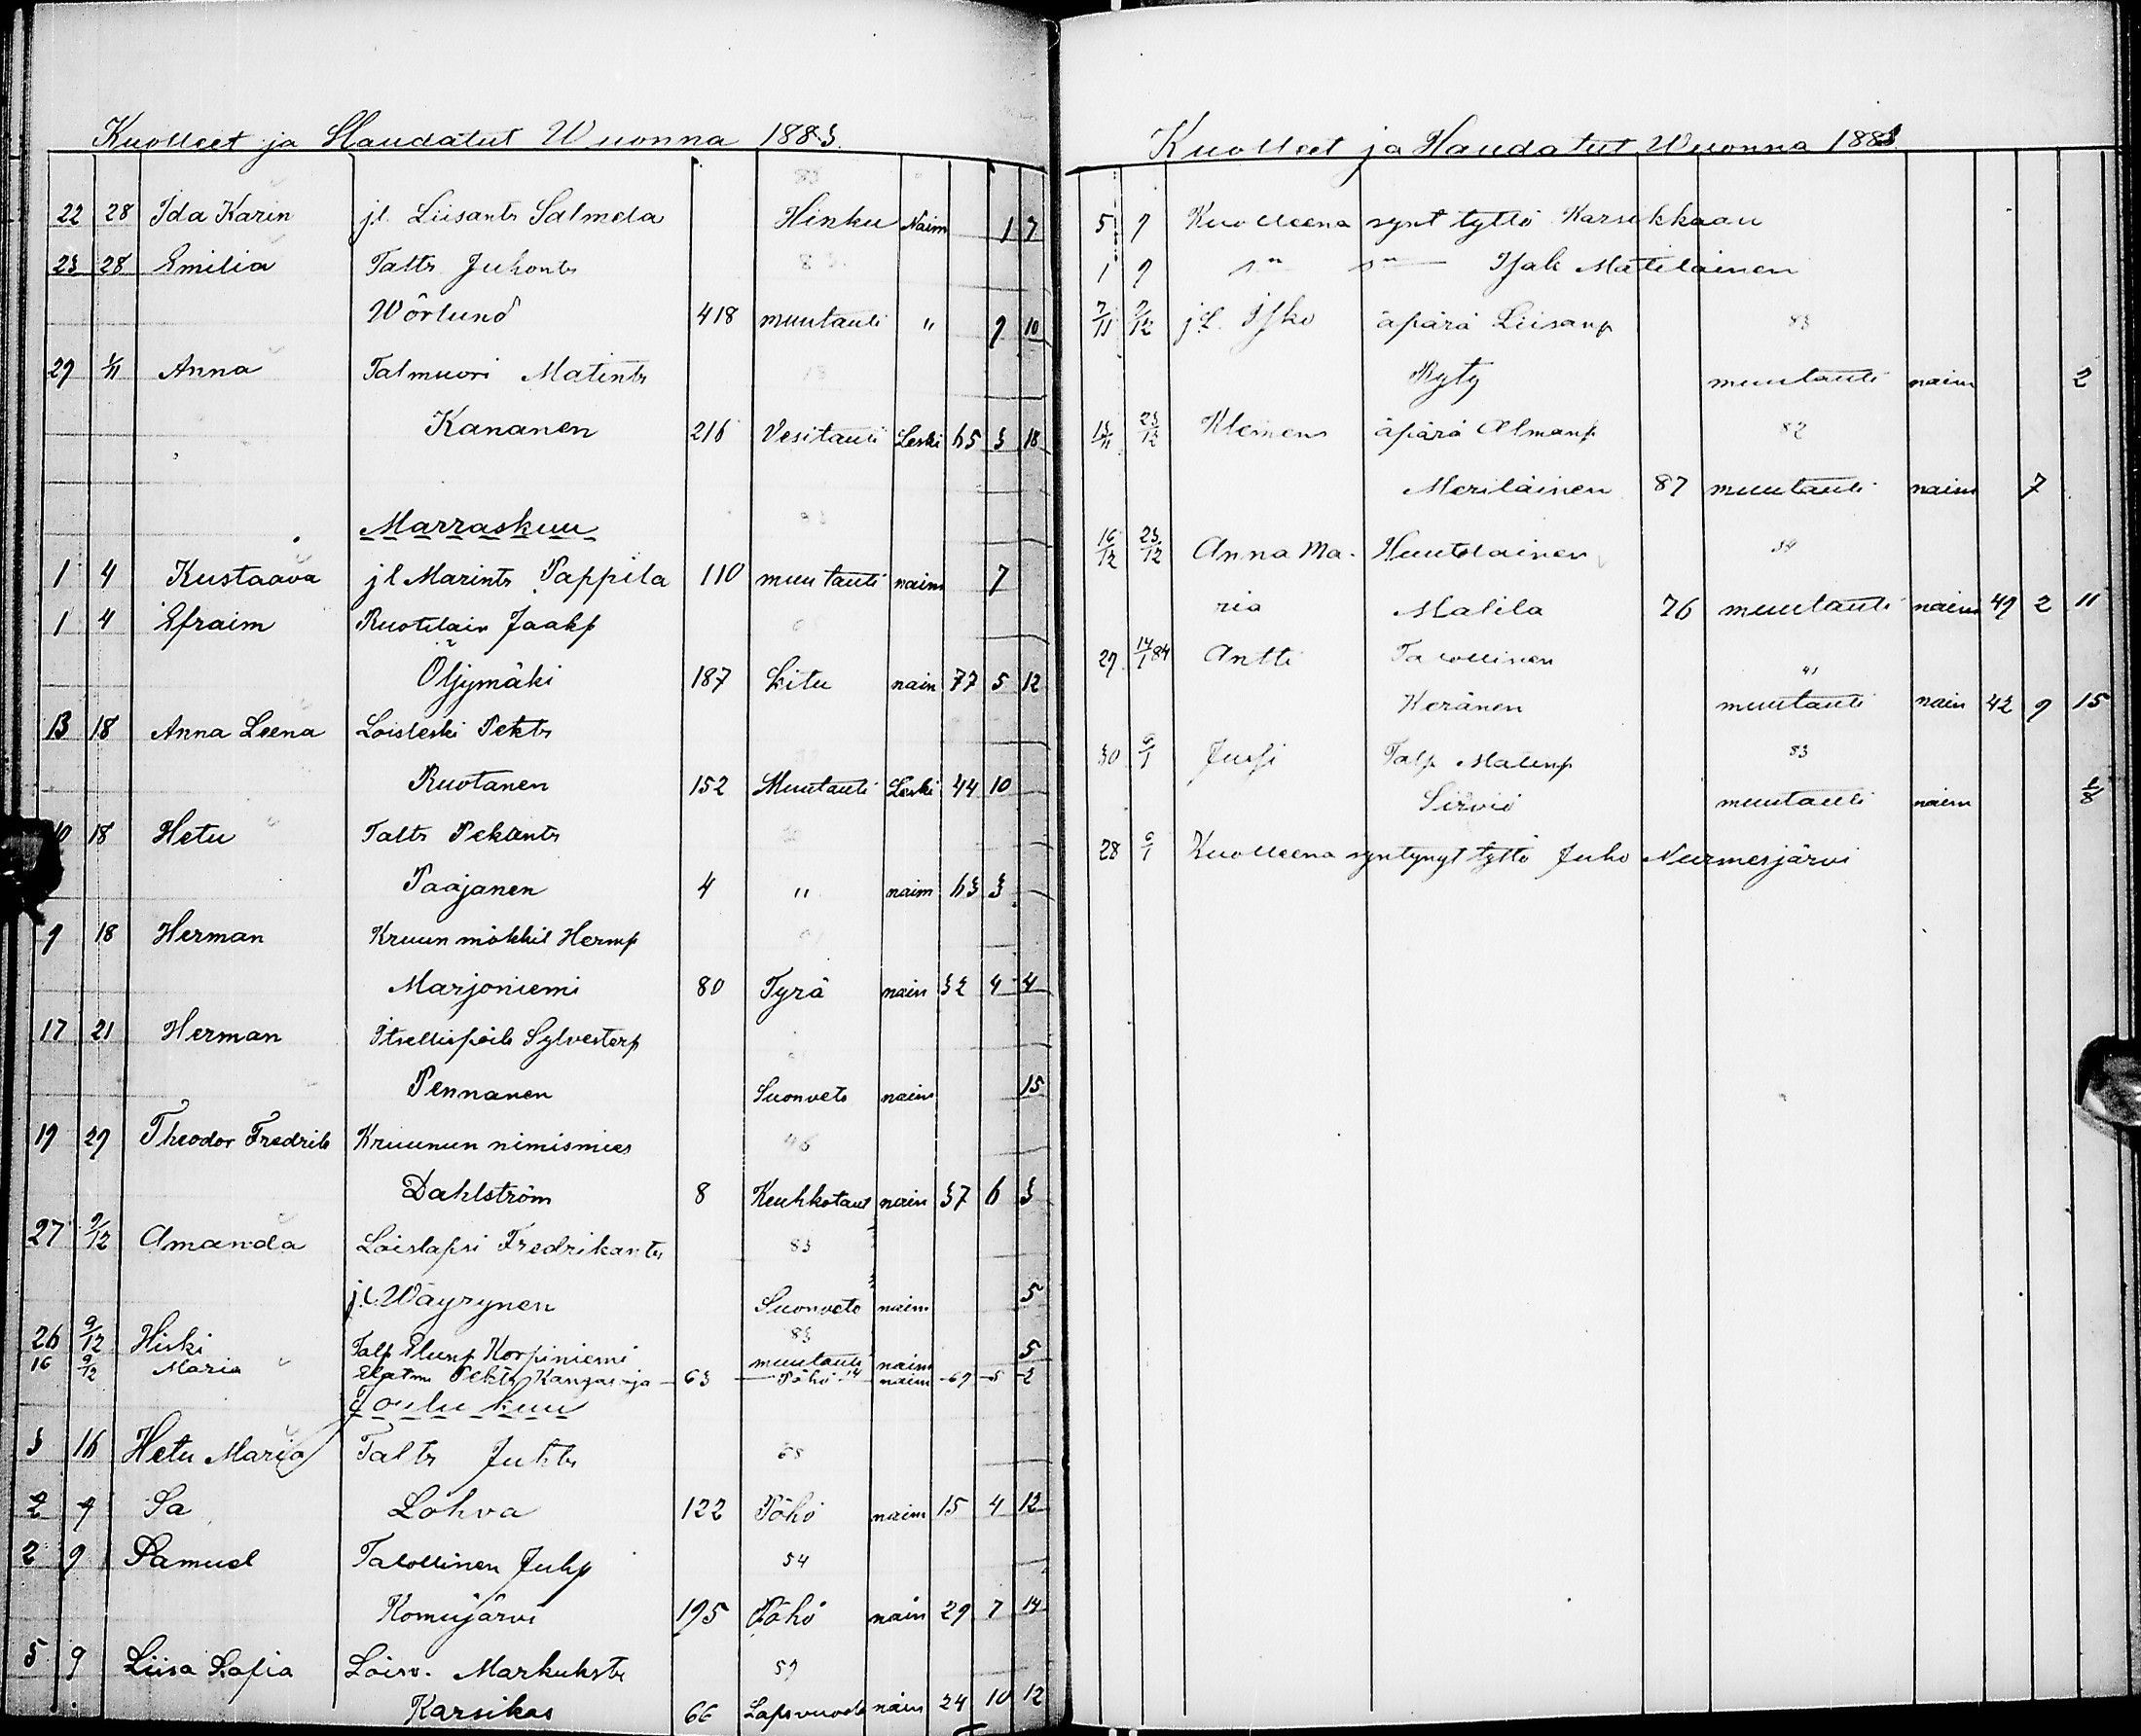 Kuolleet ja Haudatut Wuonna 1883.
22 28 Ida Karin jl. Liisantr Salmela Hinku Naim 1 7
23 28 Emilia Taltr Juhontr
Wörlund 418 muutauti " 9 10
29 1/11 Anna Talmuori Matintr
Kananen 216 Vesitauti Leski 65 3 18
Marraskuu
1 4 Kustaava jl Marintr Pappila 110 muutauti naim 7
1 4 Efraim Ruotilain Jaakp
Öljymäki 187 Litu nain 77 5 12
13 18 Anna Leena Loisleski Pektr
Ruotanen 152 Muutauti Leski 44 10
10 18 Hetu Taltr Pekantr
Paajanen 4 " naim 63 3
9 18 Herman Kruun mökkil Hermp
Marjoniemi 80 Tyrä nain 32 4 4
17 21 Herman Itsellispoik Sylvesterp
Pennanen Suonveto naim 15
19 29 Theodor Fredrik Kruunun nimismies 46
Dahlström 8 Keuhkotaut nain 37 6 3
27 9/12 Amanda Loislapsi Fredrikantr 83
jl. Wäyrynen Suonveto naim 5
26 9/12 Hiski Talp Plunp Korpiniemi 83 muutauti naim 5
16 9/12 Maria Pektr Kangas 63 Pöhö 14 naim 69 5 2
Joulukuu
3 16 Hetu Maria Taltr Juhtr 68
2 9 Sa Löhva 122 Pöhö naim 15 4 12
2 9 Samuel Talollinen Juhp 54
Komujärvi 195 Pöhö nain 29 7 14
5 9 Liisa Sofia Loisv. Markukstr 59
Karsikas 66 Lapsvuode nain 24 10 12
Kuolleet ja Haudatut Wuonna 1883.
5 9 Kuolleena synt tyttö Karsikkaan
1 9 Isak Matilainen
7/11 9/12 jl. Isko äpärä Liisanp 83
Ryty muutauti naim 2
13/11 23/12 Klemens äpärä Almanp 82
Meriläinen 87 muutauti naim 7
16/12 23/12 Anna Ma- Huutolainen 34
ria Matila 76 muutauti naim 49 2 11
29 14/1 84 Antti Talollinen 41
Keränen muutauti nain 42 9 15
30 6/1 Jussi Talp Matinp 83
Sirviö muutauti naim 1/8
28 6/1 Kuolleena syntynyt tyttö Juho Nurmesjärvi